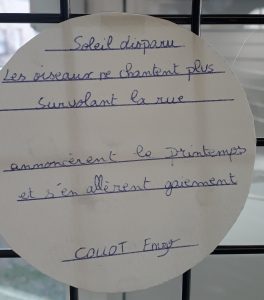 Soleil disparu
Les oiseaux ne chantent plus
Survolant la rue
annoncèrent le printemps
et s'en allèrent gaiement
COLLOT